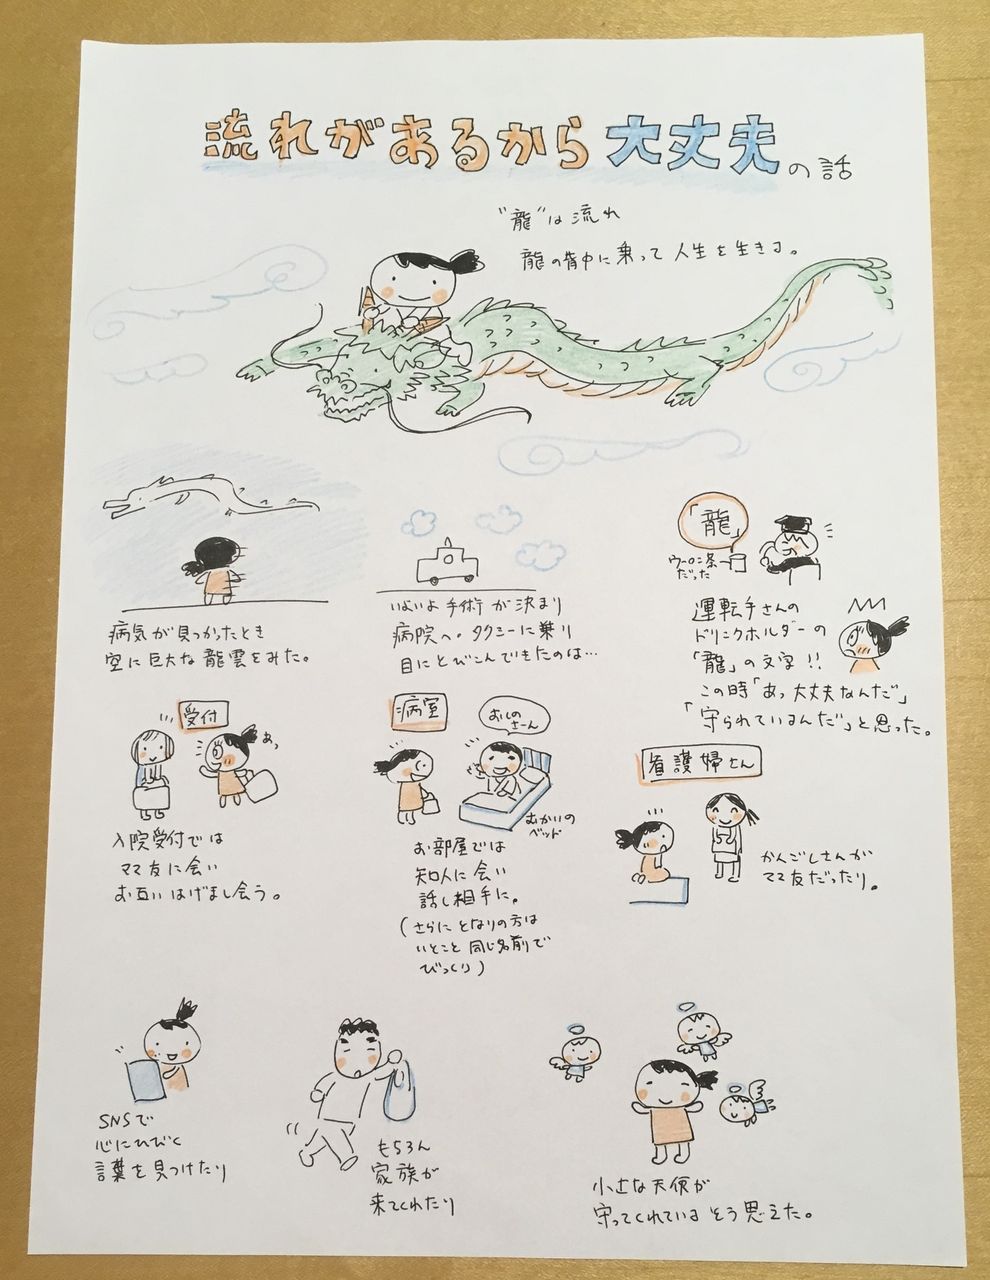 流れがあるから大丈夫の話
"龍"は流れ
龍の背中に乗って人生を生きる。
病気が見つかったとき
空に巨大な龍雲をみた。
いよいよ手術が決まり
病院へ。タクシーに乗り
目にとびこんできたのは…
「龍」
ウーロン茶
だった
運転手さんの
ドリンクホルダーの
「龍」の文字!!
この時「あっ大丈夫なんだ」
「守られているんだ」と思った。
受付
あっ
入院受付では
ママ友に会い
お互いはげまし会う。
病室
おしの
さーん
むかいの
ベッド
お部屋では
知人に会い
話し相手に。
(さらにとなりの方は
いとこと同じ名前で
びっくり)
看護婦さん
かんごしさんが
ママ友だったり。
SNSで
心にひびく
言葉を見つけたり
もちろん
家族が
来てくれたり
小さな天使が
守ってくれているそう思えた。